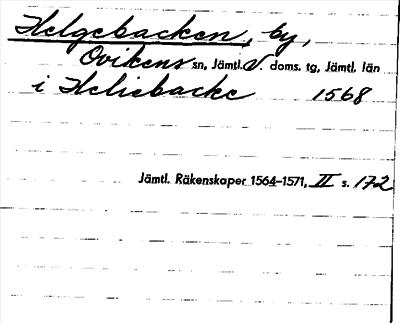 Helgebacken, by,
Ovikens sn, Jämtl. V. doms. tg, Jämtl. län
i Heliebacke 1568
Jämtl. Räkenskaper 1564–1571, II s. 172